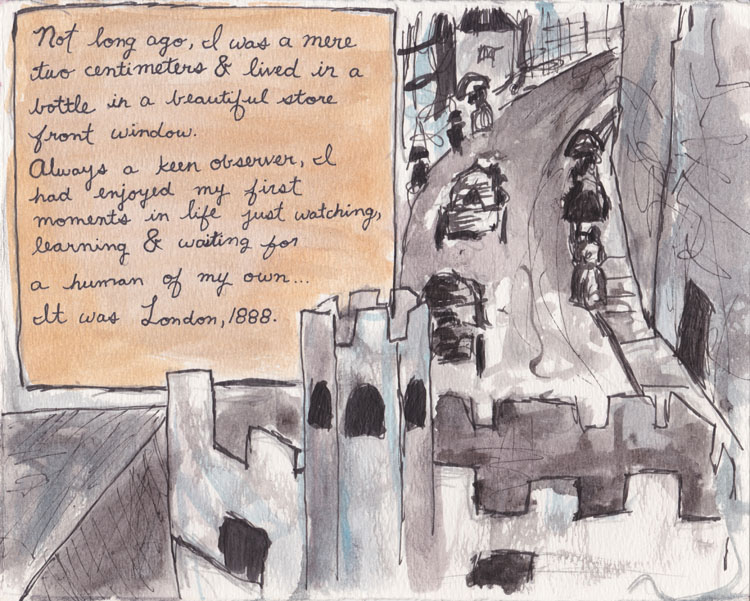 Not long ago, I was a mere
two centimeters & lived in a
bottle in a beautiful store
front window.
Always a keen observer, I
had enjoyed my first
moments in life just watching,
learning & waiting for
a human of my own...
It was London, 1888.